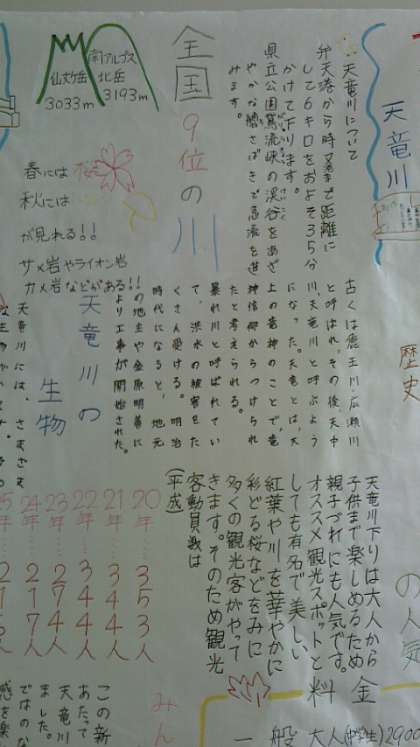 天竜川
天竜川について
弁天港から時又まで距離に
して6キロをおよそ35分
かけて下ります。
県立公園鵞流峡の渓谷をあざ
やかな櫂さばきで急流を進
みます。
全国9位の川
南アルプス
北岳
3193m
仙丈ケ岳
3033m
春には桜
秋には
が見れる!!
サメ岩やライオン岩
カメ岩などがある!!
歴史
古くは麁玉川・広瀬川
と呼ばれ、その後、天中
川、天竜川と呼ぶよう
になった。天竜とは、大
上の竜神のことで、竜
神信仰からつけられ
たと考えられる。
暴れ川と呼ばれてい
て、洪水の被害をた
くさん受ける。明治
時代になると、地元
の地主や金原明善に
より工事が開始された。
天竜川の
生物
天竜川には、さまざま
の人気
天竜川下りは大人から
子供まで楽しめるため
親子づれにも人気です。
オススメ観光スポットと
しても有名で美しい
紅葉や川を華やかに
彩どる桜などをみに
多くの観光客がやって
きます。そのため観光
客動員数は
(平成)
20年……353人
21年……344人
22年……344人
23年……274人
24年……
25年……
料金
一般 大人(中学生)2900
みん
この新
あたって
天竜川
ました。
ではのな
感を楽